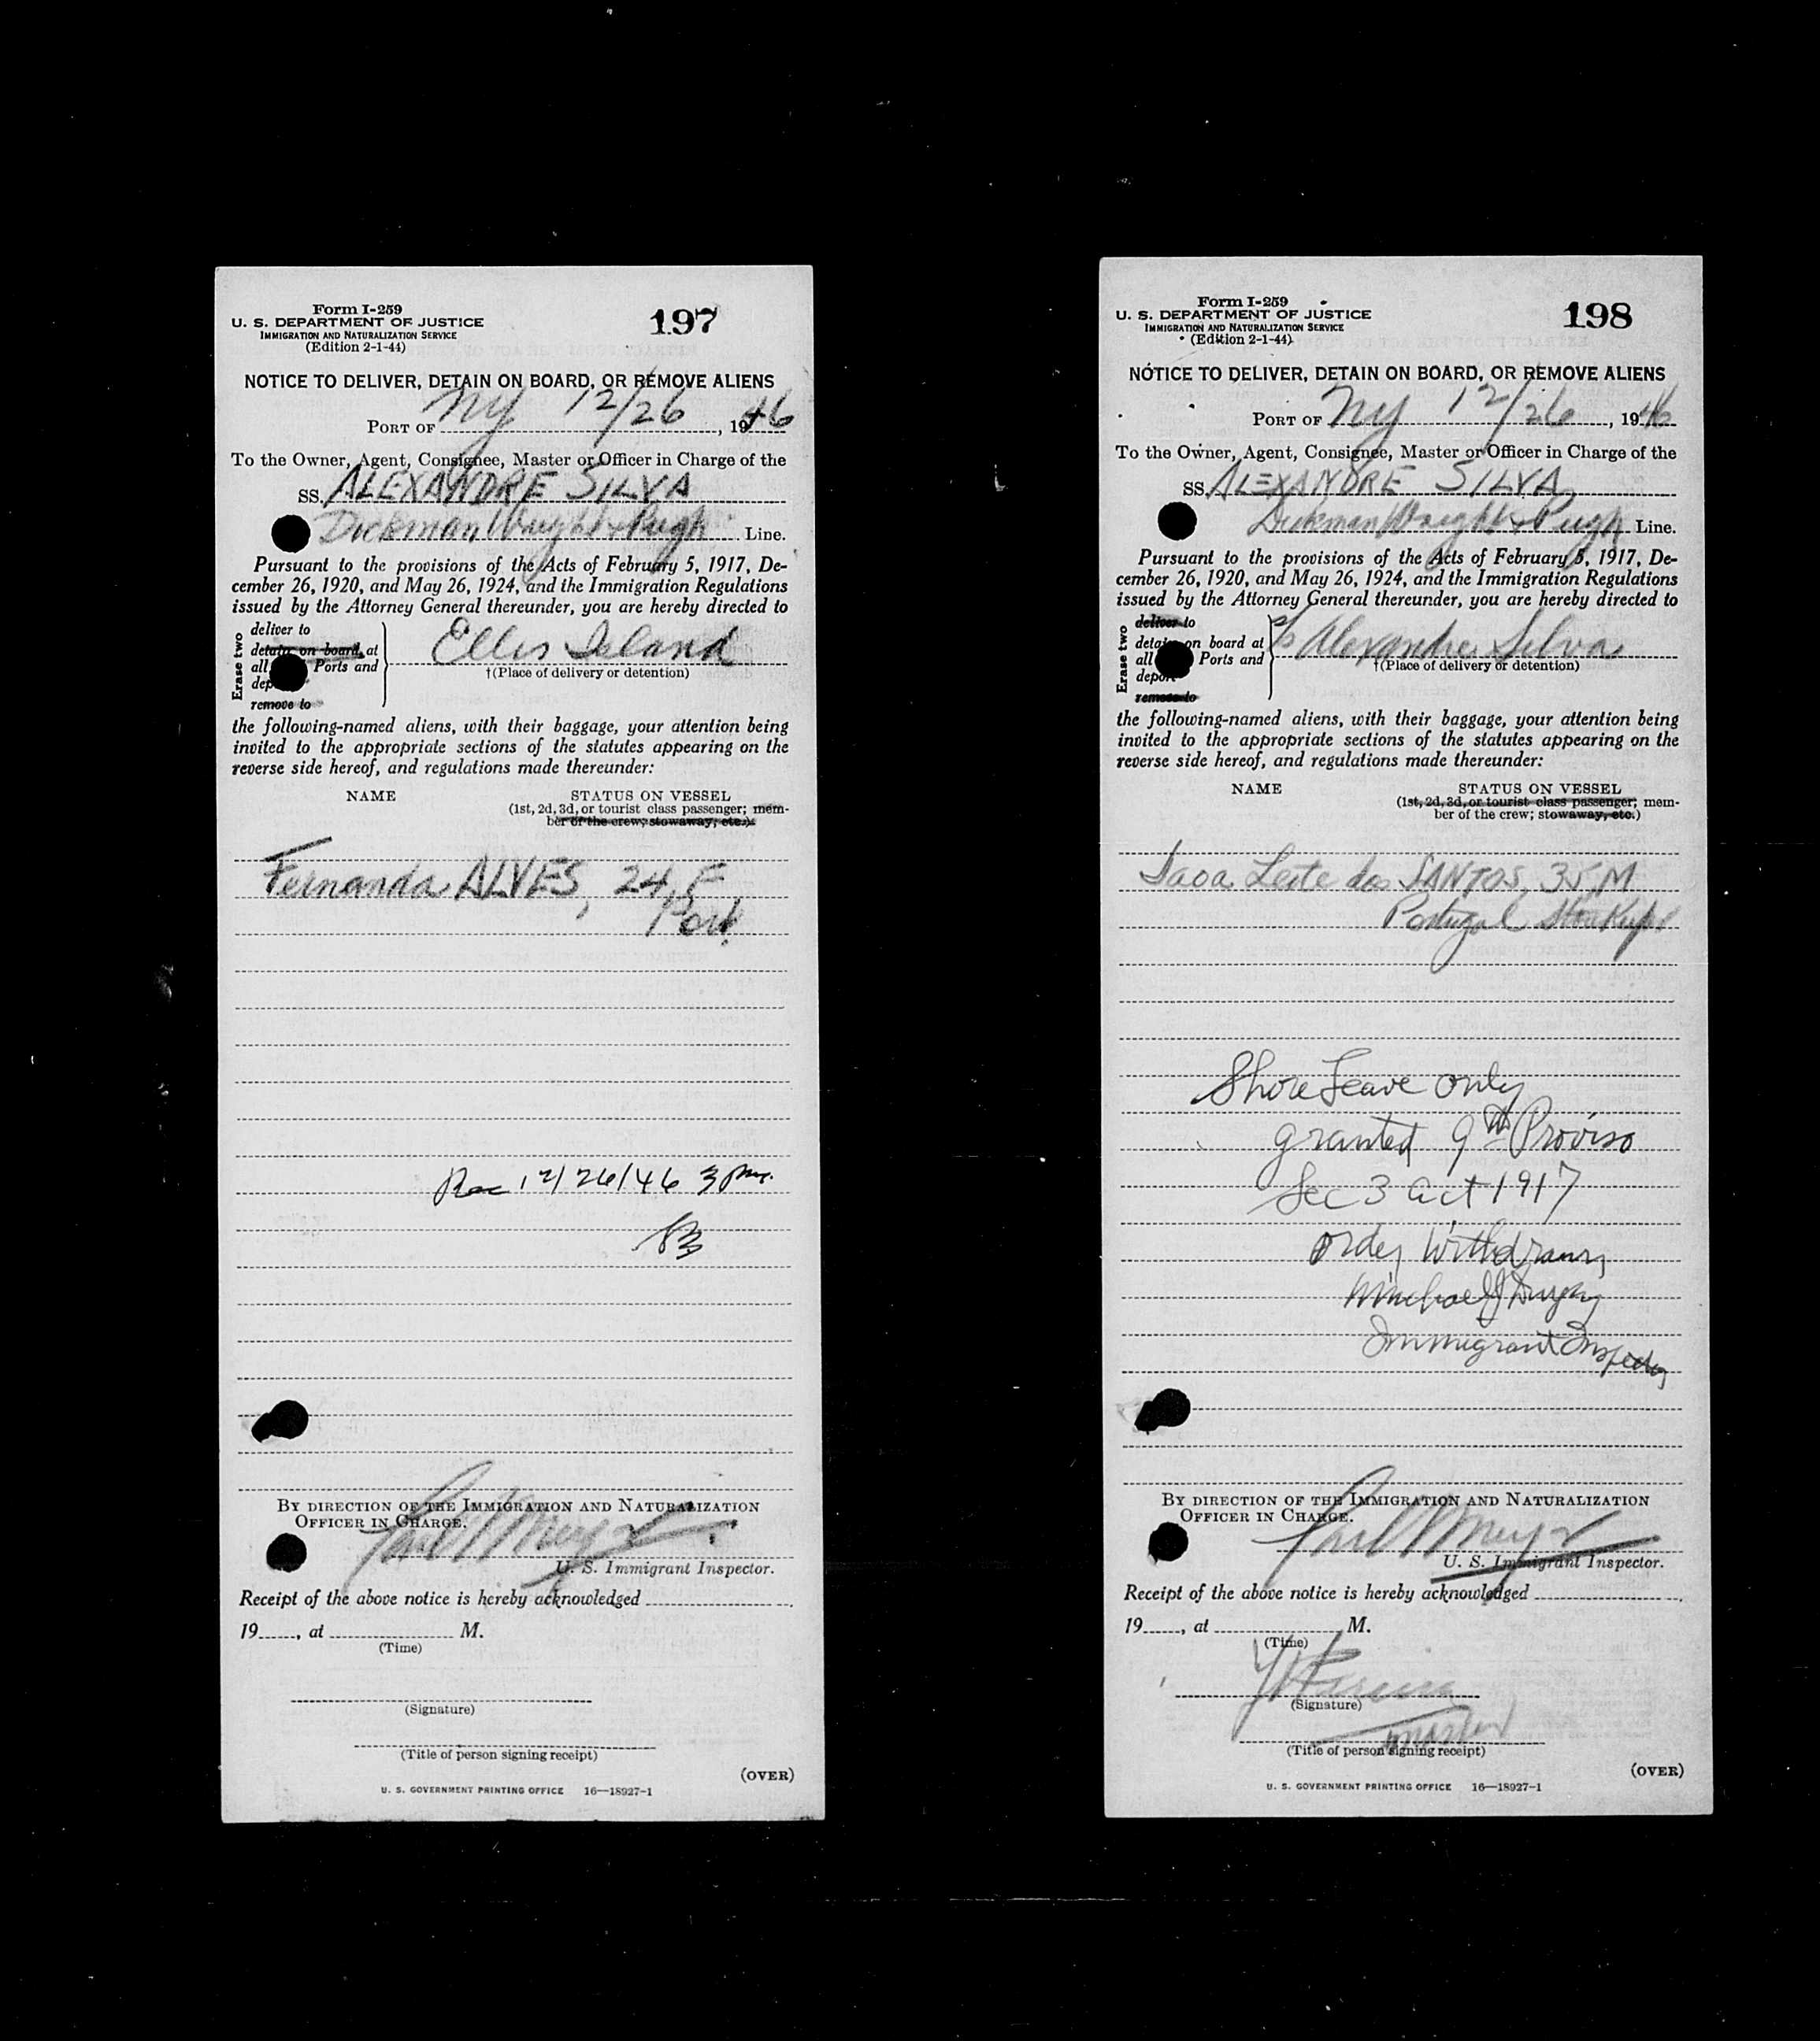 Form I-259
U. S. DEPARTMENT OF JUSTICE
IMMIGRATION AND NATURALIZATION SERVICE
(Edition 2-1-44)
197
NOTICE TO DELIVER, DETAIN ON BOARD, OR REMOVE ALIENS
PORT OF NY 12/26, 1946
To the Owner, Agent, Consignee, Master or Officer in Charge of the
SS. ALEXANDRE SILVA
Dickman, Wright & Pugh Line.
Pursuant to the provisions of the Acts of February 5, 1917, De-
cember 26, 1920, and May 26, 1924, and the Immigration Regulations
issued by the Attorney General thereunder, you are hereby directed to
Erase two
deliver to
detain on board at
all Ports and
remove to
Ellis Island
†(Place of delivery or detention)
the following-named aliens, with their baggage, your attention being
invited to the appropriate sections of the statutes appearing on the
reverse side hereof, and regulations made thereunder:
NAME STATUS ON VESSEL
(1st, 2d, 3d, or tourist class passenger; mem-
ber of the crew; stowaway, etc.)
Fernanda ALVES, 24, F
Port.
Rec 12/26/46 3 pm.
BY DIRECTION OF THE IMMIGRATION AND NATURALIZATION
OFFICER IN CHARGE.
U. S. Immigrant Inspector.
Receipt of the above notice is hereby acknowledged
19, at M.
(Time)
(Signature)
(Title of person signing receipt)
(OVER)
U. S. GOVERNMENT PRINTING OFFICE 16—18927-1
Form I-259
U. S. DEPARTMENT OF JUSTICE
IMMIGRATION AND NATURALIZATION SERVICE
(Edition 2-1-44)
198
NOTICE TO DELIVER, DETAIN ON BOARD, OR REMOVE ALIENS
PORT OF NY 12/26, 1946
To the Owner, Agent, Consignee, Master or Officer in Charge of the
SS. ALEXANDRE SILVA
Dickman Wright & Pugh Line.
Pursuant to the provisions of the Acts of February 5, 1917, De-
cember 26, 1920, and May 26, 1924, and the Immigration Regulations
issued by the Attorney General thereunder, you are hereby directed to
Erase two
deliver to
on board at
all Ports and
remove to
Alexandre Silva
†(Place of delivery or detention)
the following-named aliens, with their baggage, your attention being
invited to the appropriate sections of the statutes appearing on the
reverse side hereof, and regulations made thereunder:
NAME STATUS ON VESSEL
(1st, 2d, 3d, or tourist class passenger; mem-
ber of the crew; stowaway, etc.)
Leite dos SANTOS, 35, M
Portugal
Shore Leave only
granted 9th Proviso
Sec 3 act 1917
order withdrawn
Immigrant Inspector
BY DIRECTION OF THE IMMIGRATION AND NATURALIZATION
OFFICER IN CHARGE.
U. S. Immigrant Inspector.
Receipt of the above notice is hereby acknowledged
19, at M.
(Time)
(Signature)
master
(Title of person signing receipt)
(OVER)
U. S. GOVERNMENT PRINTING OFFICE 16—18927-1